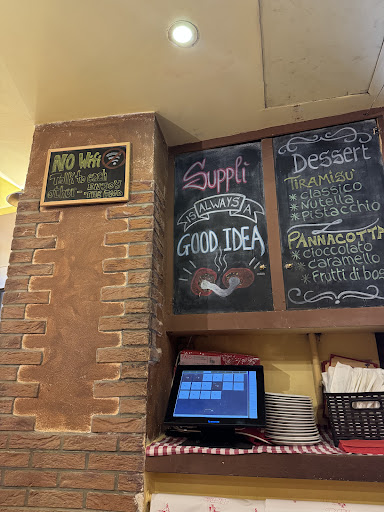 NO Wifi
Talk to each
other - ENJOY
THE FOOD
Suppli
IS ALWAYS A
GOOD IDEA
Dessert
TIRAMISU
* CLASSICO
* Nutella
* Pistacchio
PANNACOTTA
* cioccolato
* caramello
* Frutti di bos